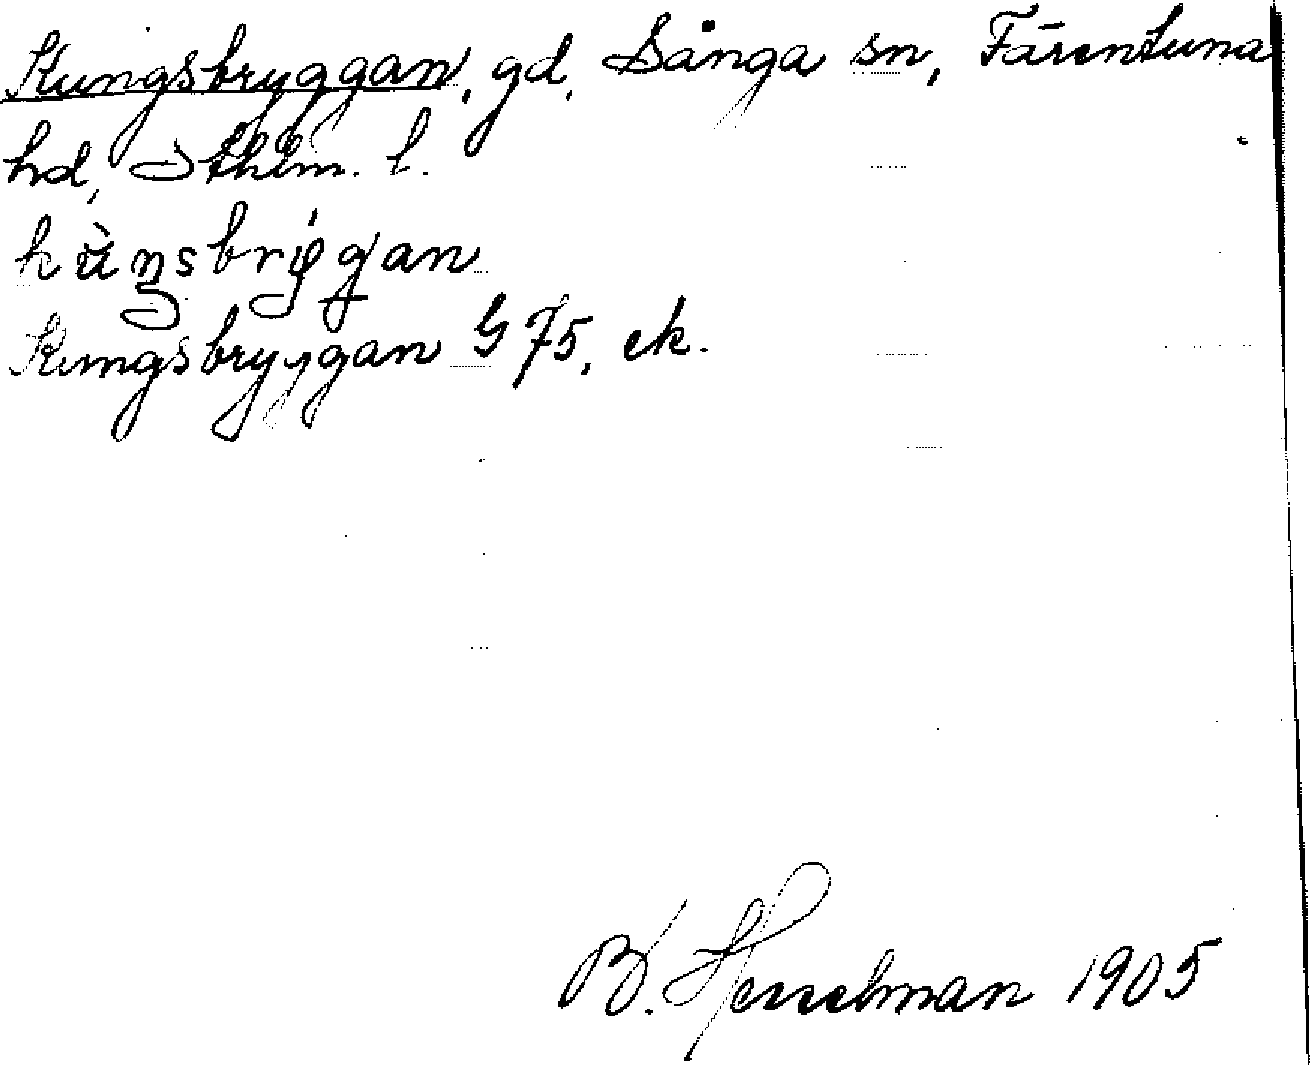 Kungsbryggan, gd, Sånga sn, Färentuna
hd, Sthlm. l.
kùŋsbrýgan
Kungsbryggan G 75, ek.
B. Hesselman 1905